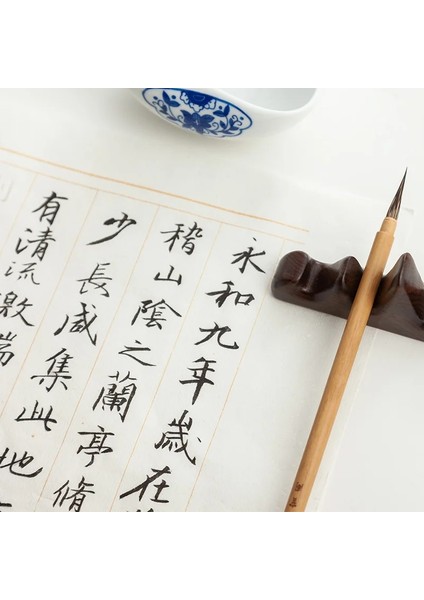 永和九年歲在
稽山陰之蘭亭脩
少長咸集此地
有清流激湍